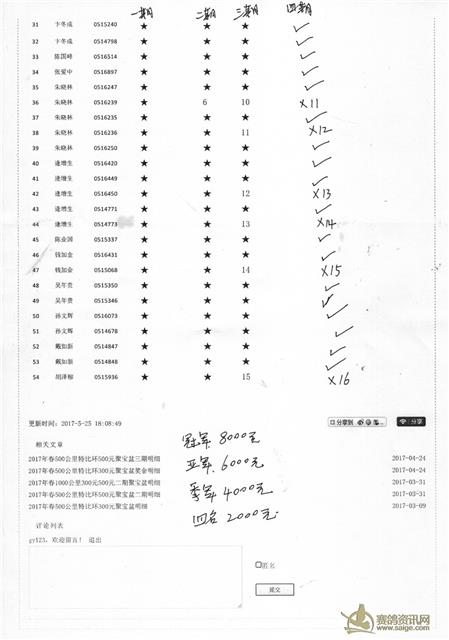 一期 二期 三期 四期
31 卞冬成 0515240 ★ ★ ★ ✓
32 卞冬成 0514798 ★ ★ ★ ✓
33 陈国峰 0516514 ★ ★ ★ ✓
34 张爱中 0516897 ★ ★ ★ ✓
35 朱晓林 0516247 ★ ★ ★ ✓
36 朱晓林 0516239 ★ 6 10 ×11
37 朱晓林 0516235 ★ ★ ★ ✓
38 朱晓林 0516236 ★ ★ 11 ×12
39 朱晓林 0516250 ★ ★ ★ ✓
40 逄增生 0516420 ★ ★ ★ ✓
41 逄增生 0516449 ★ ★ ★ ✓
42 逄增生 0516450 ★ ★ 12 ×13
43 逄增生 0514771 ★ ★ ★ ✓
44 逄增生 0514773 ★ ★ 13 ×14
45 陈业国 0515337 ★ ★ ★ ✓
46 钱加金 0516431 ★ ★ ★ ✓
47 钱加金 0515068 ★ ★ 14 ×15
48 吴年贵 0515350 ★ ★ ★ ✓
49 吴年贵 0515346 ★ ★ ★ ✓
50 孙文辉 0516073 ★ ★ ★ ✓
51 孙文辉 0514678 ★ ★ ★ ✓
52 戴如新 0514847 ★ ★ ★ ✓
53 戴如新 0514848 ★ ★ ★ ✓
54 胡泽柳 0515936 ★ ★ 15 ×16
更新时间：2017-5-25 18:08:49 分享到 分享
相关文章
冠军 8000元
2017年春500公里特比环500元聚宝盆三期明细 2017-04-24
亚军 6000元
2017年春500公里特比环300元聚宝盆奖金明细 2017-04-24
2017年春1000公里300元500元二期聚宝盆明细 2017-03-31
季军 4000元
2017年春500公里特比环500元聚宝盆二期明细 2017-03-31
2017年春500公里特比环300元聚宝盆明细 2017-03-09
四名 2000元
评论列表
gy123，欢迎留言！ 退出
匿名
提交
赛鸽资讯网
www.saige.com